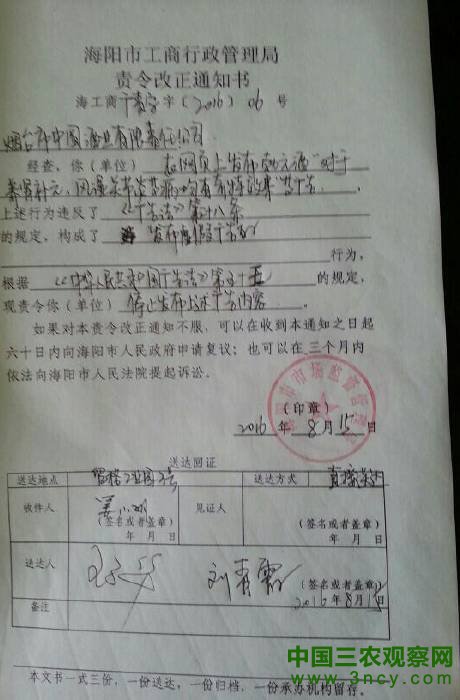 海阳市工商行政管理局
责令改正通知书
海工商广责字字〔2016〕06号
烟台市中国酒业有限责任公司
经查，你（单位）在网页上发布 元酒"对于
养肾补元、风湿 均有奇特效果"等广告。
上述行为违反了《广告法》第十八条
的规定，构成了发布虚假广告的
行为，
根据《中华人民共和国广告法》第五十五的规定，
现责令你（单位）停止发布上述广告内容。
如果对本责令改正通知不服，可以在收到本通知之日起
六十日内向海阳市人民政府申请复议；也可以在三个月内
依法向海阳市人民法院提起诉讼。
海阳市市场监督管理局
（印章）
2016年8月15日
送达回证
送达地点 工业园 送达方式 直接送达
收件人 姜 见证人
（签名或者盖章） （签名或者盖章）
年 月 日 年 月 日
送达人 刘青霞 （签名或者盖章）
2016年8月15日
备注
本文书一式三份，一份送达，一份归档，一份承办机构留存。
中国三农观察网
www.3ncy.com